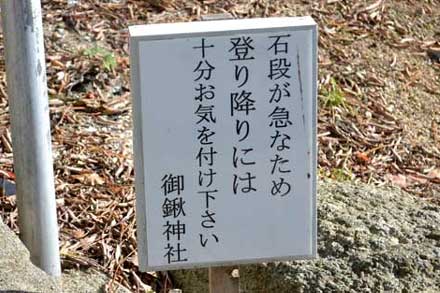 石段が急なため
登り降りには
十分お気を付け下さい
御鍬神社